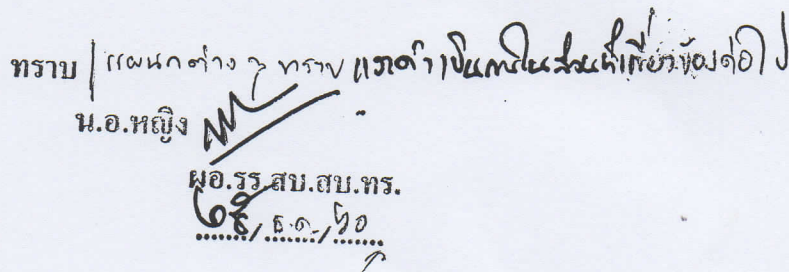 ทราบ / แผนกต่าง ๆ ทราบ และดำเนินการในส่วนที่เกี่ยวข้องต่อไป
น.อ.หญิง
ผอ.รร.สบ.สบ.ทร.
๒๕/ ธ.ค./ ๖๐